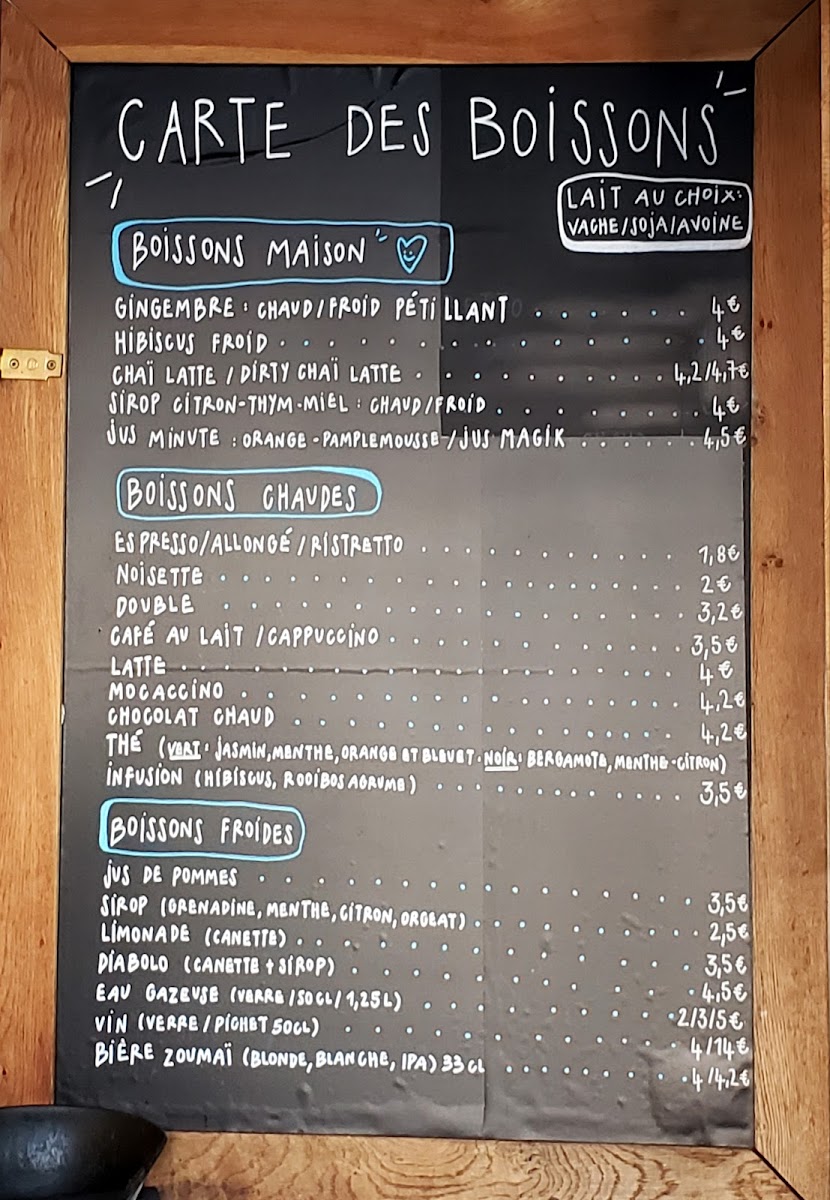 CARTE DES BOISSONS
LAIT AU CHOIX:
VACHE/SOJA/AVOINE
BOISSONS MAISON
GINGEMBRE : CHAUD/FROID PÉTILLANT . . . . . . 4€
HIBISCUS FROID . . . . . . . . . . . . . . 4€
CHAÏ LATTE / DIRTY CHAÏ LATTE . . . . . . . . . . 4,2/4,7€
SIROP CITRON-THYM-MIEL : CHAUD/FROID . . . . . . . . 4€
JUS MINUTE : ORANGE-PAMPLEMOUSSE/JUS MAGIK . . . . . . 4,5€
BOISSONS CHAUDES
ESPRESSO/ALLONGÉ/RISTRETTO . . . . . . . . . . . 1,8€
NOISETTE . . . . . . . . . . . . . . . . . . 2€
DOUBLE . . . . . . . . . . . . . . . . . . 3,2€
CAFÉ AU LAIT /CAPPUCCINO . . . . . . . . . . . . 3,5€
LATTE . . . . . . . . . . . . . . . . . . 4€
MOCACCINO . . . . . . . . . . . . . . . . . 4,2€
CHOCOLAT CHAUD . . . . . . . . . . . . . . . 4,2€
THÉ (VERT : JASMIN, MENTHE, ORANGE ET BLEUET . NOIR : BERGAMOTE, MENTHE-CITRON)
INFUSION (HIBISCUS, ROOIBOS AGRUME) . . . . . . . . . . 3,5€
BOISSONS FROIDES
JUS DE POMMES . . . . . . . . . . . . . . . . . 3,5€
SIROP (GRENADINE, MENTHE, CITRON, ORGEAT) . . . . . . . . . 2,5€
LIMONADE (CANETTE) . . . . . . . . . . . . . . 3,5€
DIABOLO (CANETTE + SIROP) . . . . . . . . . . . . 4,5€
EAU GAZEUSE (VERRE/50CL/1,25L) . . . . . . . . . 2/3/5€
VIN (VERRE/PICHET 50CL) . . . . . . . . . . . . 4/14€
BIÈRE ZOUMAÏ (BLONDE, BLANCHE, IPA) 33CL . . . . . . . . 4/4,2€